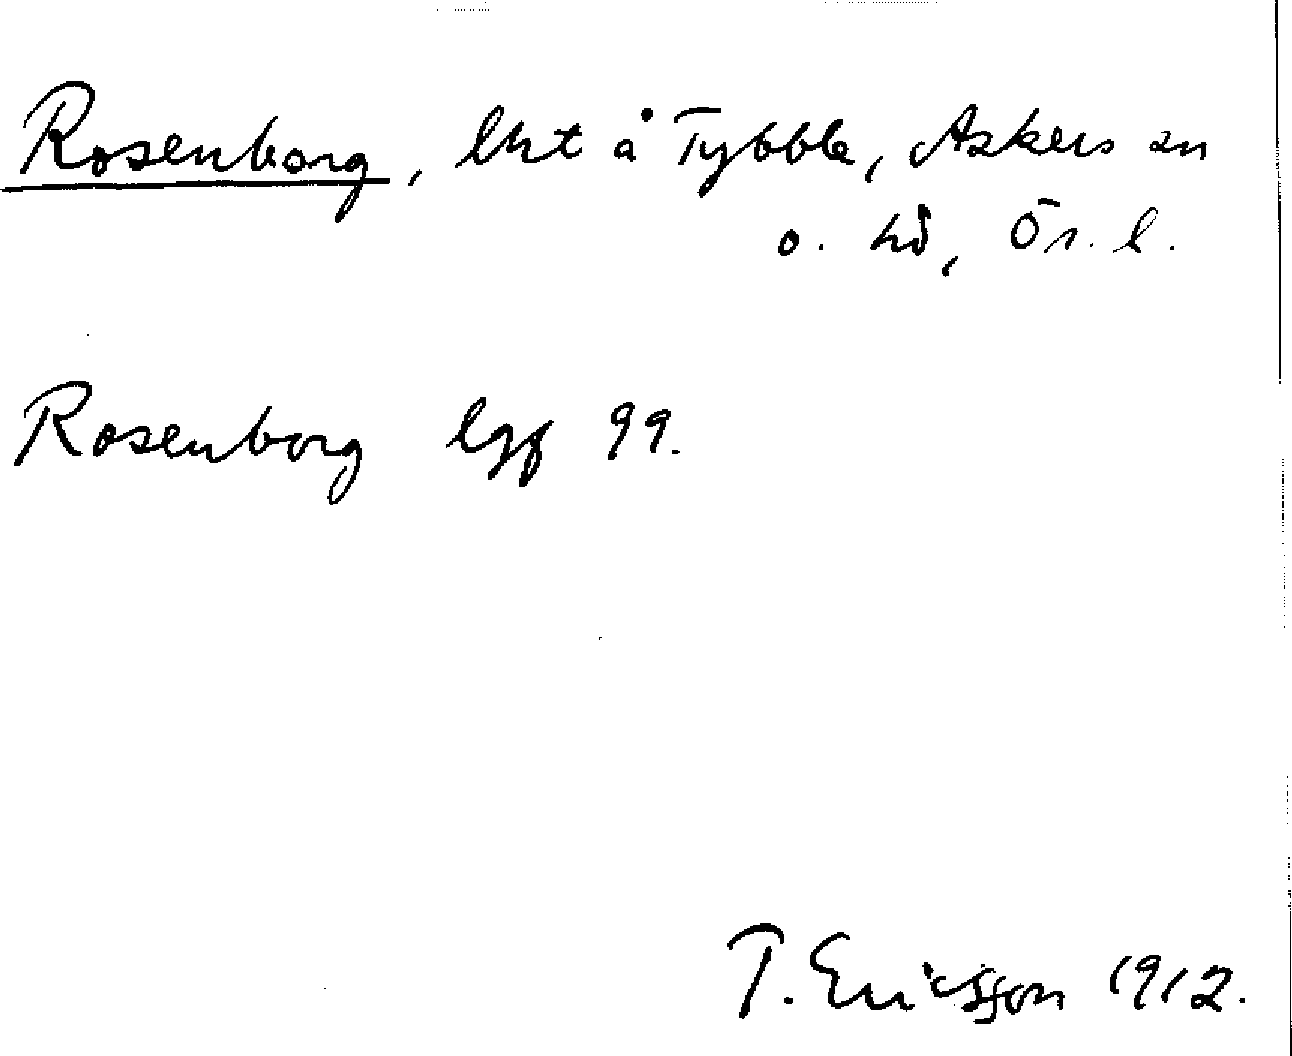 Rosenborg, lht å Tybble, Askers sn
o. hd, Ör. l.
Rosenborg lgf 99.
T. Ericsson 1912.